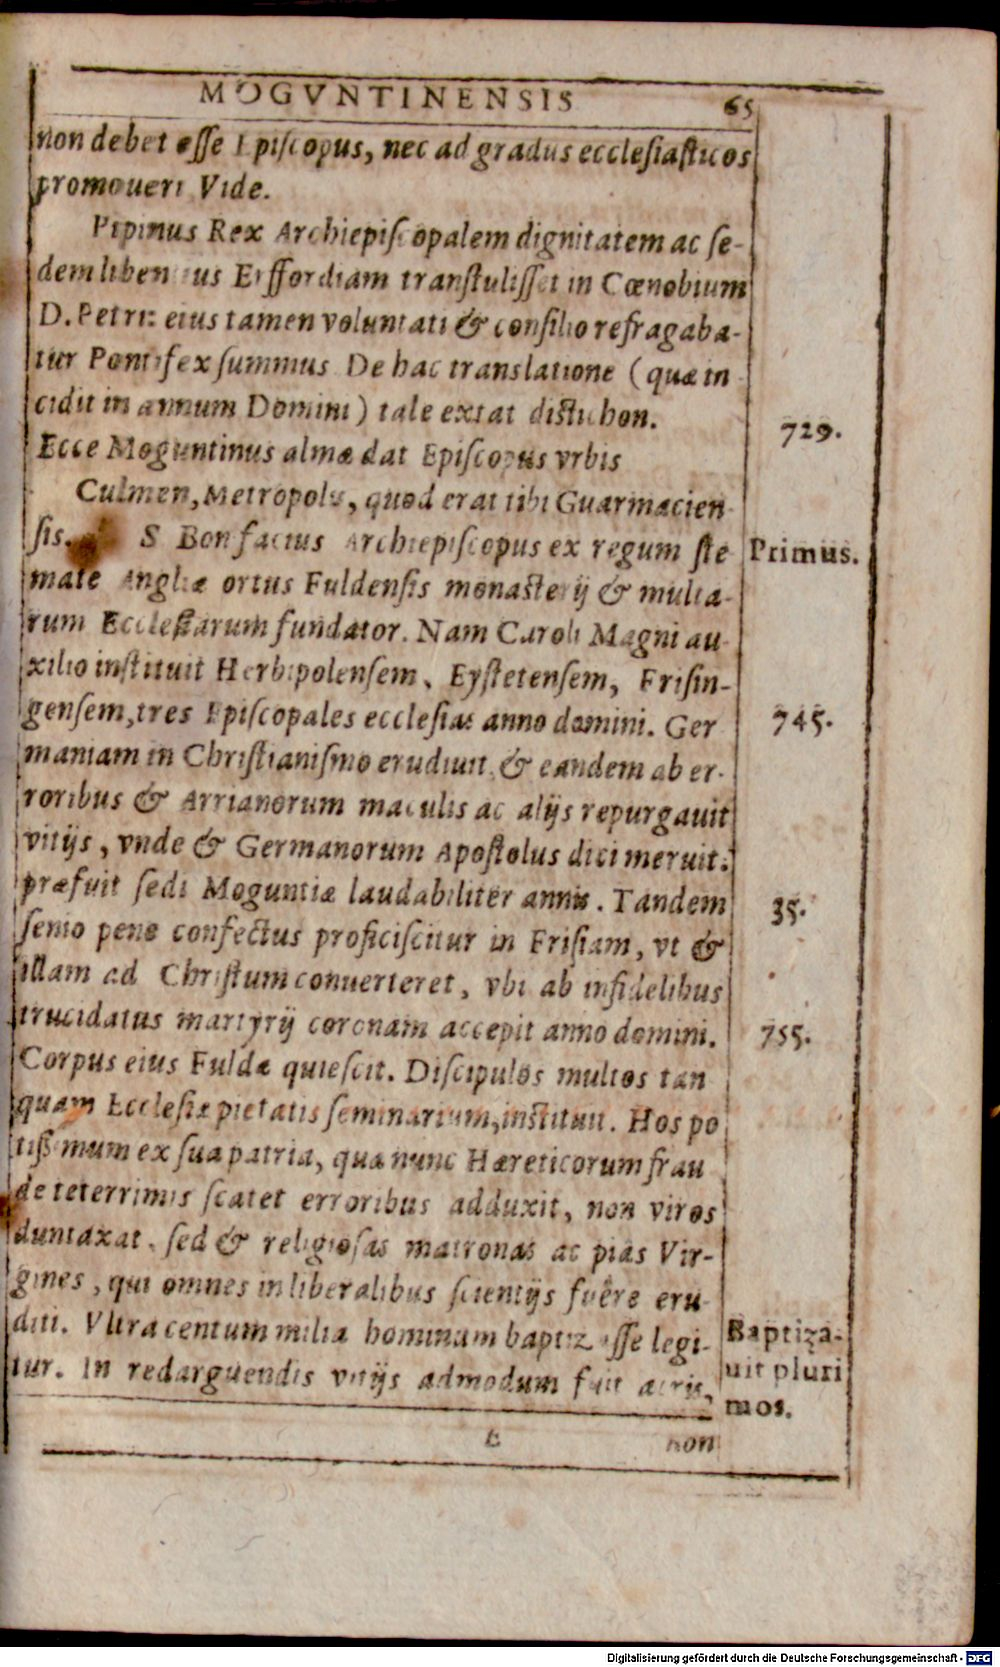 MOGVNTINENSIS 65
non debet eſſe Epiſcopus, nec ad gradus eccleſiaſticos
promoueri Vide.
Pipinus Rex Archiepiſcopalem dignitatem ac ſe-
dem libentius Erffordiam tranſtuliſſet in Cœnobium
D. Petri: eius tamen voluntati & conſilio refragaba-
tur Pontifex ſummus De hac translatione (quæ in
cidit in annum Domini) tale extat diſtichon.
729.
Ecce Moguntinus almæ dat Epiſcopus vrbis
Culmen, Metropolis, quod erat tibi Guarmacien-
ſis. S Bonifacius Archiepiſcopus ex regum ſte
Primus.
mate Angliæ ortus Fuldenſis monaſterij & multa-
rum Eccleſiarum fundator. Nam Caroli Magni au-
xilio inſtituit Herbipolenſem, Eyſtetenſem, Friſin-
genſem, tres Epiſcopales eccleſias anno domini. Ger
745.
maniam in Chriſtianiſmo erudiuit, & eandem ab er-
roribus & Arrianorum maculis ac alijs repurgauit
vitijs, vnde & Germanorum Apoſtolus dici meruit:
præfuit ſedi Moguntiæ laudabiliter annis. Tandem
35.
ſenio pene confectus proficiſcitur in Friſiam, vt &
illam ad Chriſtum conuerteret, vbi ab infidelibus
trucidatus martyrij coronam accepit anno domini.
755.
Corpus eius Fuldæ quieſcit. Diſcipulos multos tan
quam Eccleſiæ pietatis ſeminarium, inſtituit. Hos po
tiſsimum ex ſua patria, qua nunc Hæreticorum frau
de teterrimis ſcatet erroribus adduxit, non viros
duntaxat, ſed & religioſas matronas ac pias Vir-
gines, qui omnes in liberalibus ſcientijs fuêre eru-
diti. Vltra centum milia hominum baptizaſſe legi-
tur. In redarguendis vitijs admodum fuit acris,
Baptiza-
uit pluri
mos.
E non
Digitalisierung gefördert durch die Deutsche Forschungsgemeinschaft - DFG